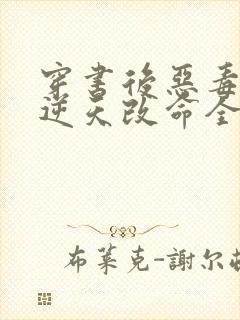 穿書後惡毒
逆天改命全
布萊克-謝尔